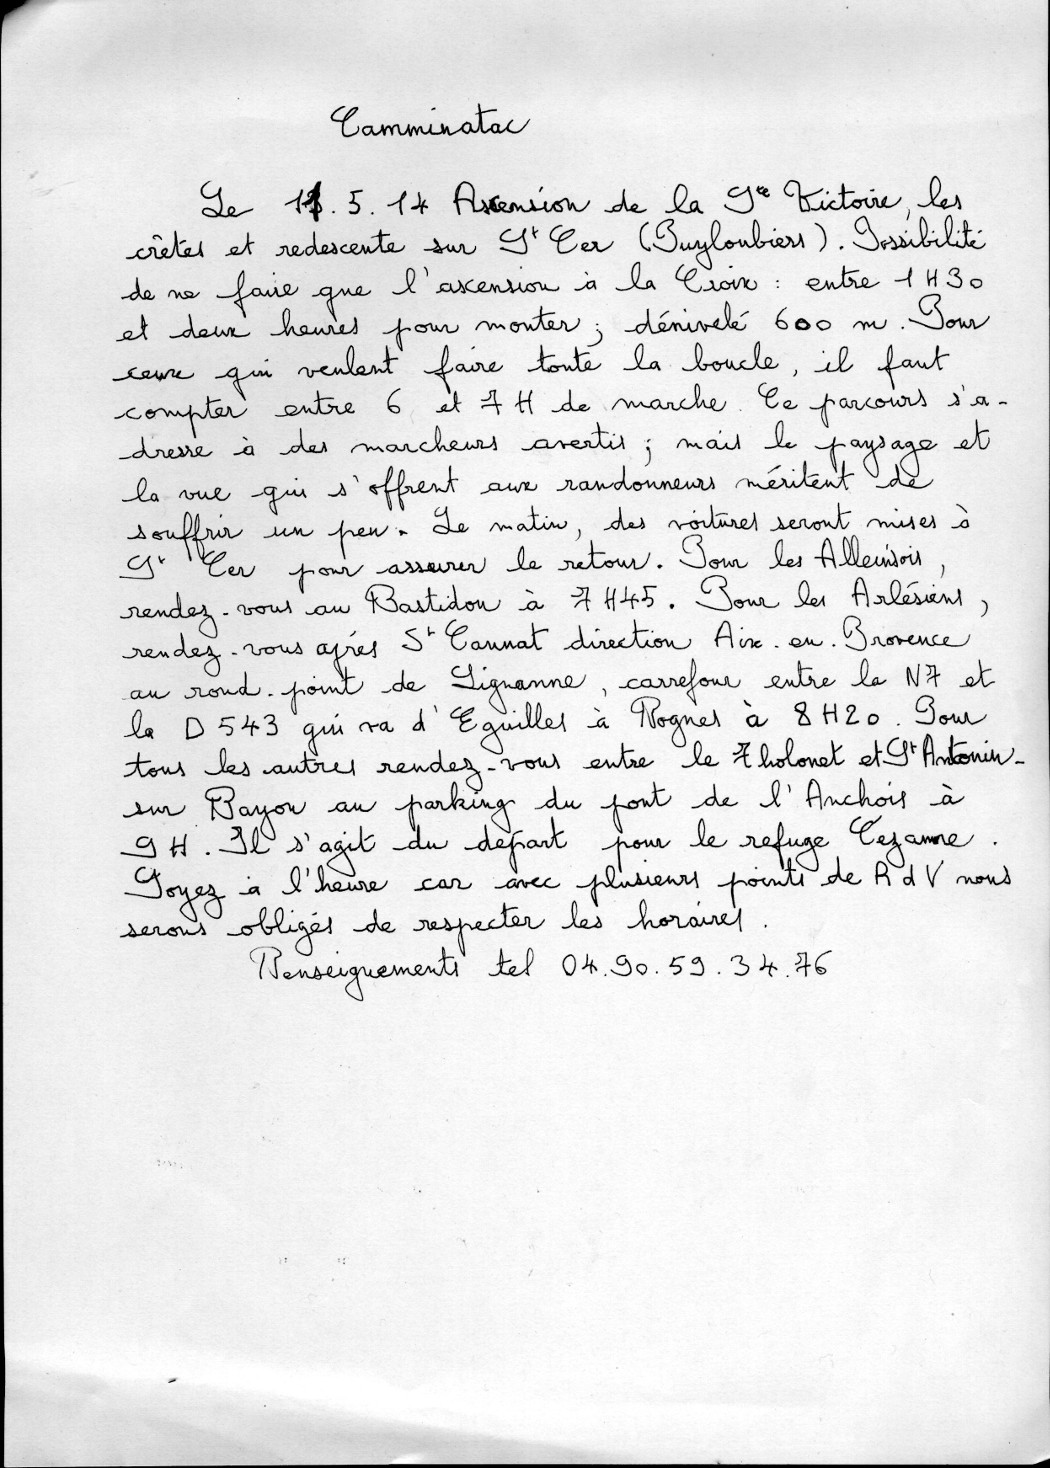 Camminatac
Le 11.5.14 Ascension de la Ste Victoire, les
crêtes et redescente sur St Cer (Puyloubiers). Possibilité
de ne faire que l'ascension à la Croix : entre 1H30
et deux heures pour monter ; dénivelé 600 m. Pour
ceux qui veulent faire toute la boucle, il faut
compter entre 6 et 7H de marche. Ce parcours s'a-
dresse à des marcheurs avertis ; mais le paysage et
la vue qui s'offrent aux randonneurs méritent de
souffrir un peu. Le matin, des voitures seront mises à
St Cer pour assurer le retour. Pour les Alleinsois,
rendez-vous au Bastidon à 7H45. Pour les Arlésiens,
rendez-vous après St Cannat direction Aix-en-Provence
au rond-point de Lignanne, carrefour entre la N7 et
la D543 qui va d'Eguilles à Rognes à 8H20. Pour
tous les autres rendez-vous entre le Tholonet et St Antonin-
sur Bayon au parking du pont de l'Anchois à
9H. Il s'agit du départ pour le refuge Cézanne.
Soyez à l'heure car avec plusieurs points de RdV nous
serons obligés de respecter les horaires.
Renseignements tel 04.90.59.34.76